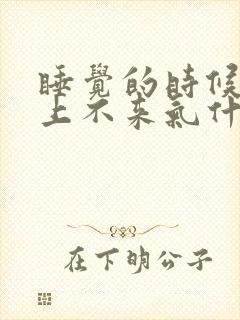 睡覺的時候
上不来氣什
在下明公子